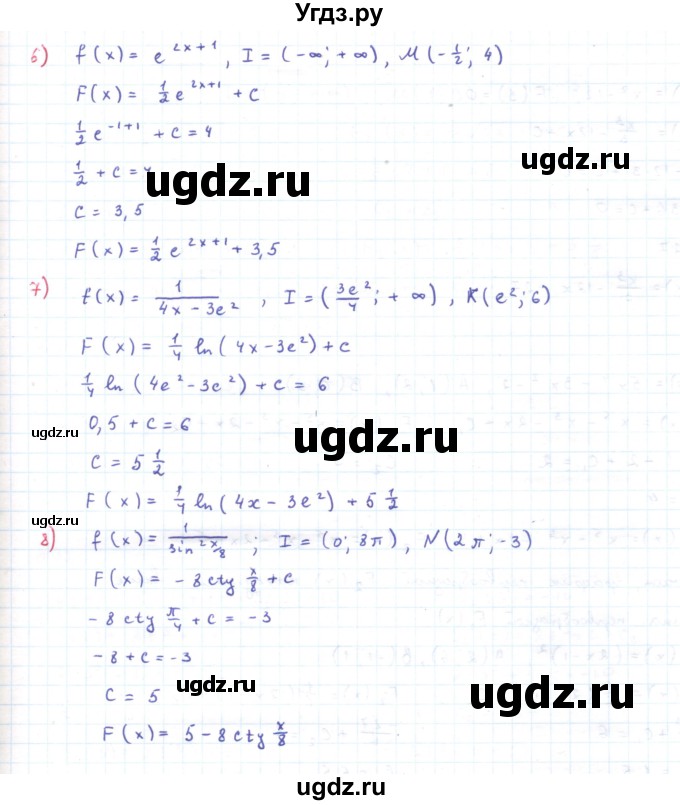 Угдз.ру
6) f(x) = e^{2x+1}, I = (-∞; +∞), M(-1/2; 4)
F(x) = 1/2 e^{2x+1} + C
1/2 e^{-1+1} + C = 4
1/2 + C =
ugdz.ru
ugdz.ru
C = 3,5
F(x) = 1/2 e^{2x+1} + 3,5
7) f(x) = 1/(4x - 3e²), I = (3e²/4; +∞), K(e²; 6)
F(x) = 1/4 ln(4x - 3e²) + C
1/4 ln(4e² - 3e²) + C = 6
0,5 + C = 6
ugdz.ru
ugdz.ru
C = 5 1/2
F(x) = 1/4 ln(4x - 3e²) + 5 1/2
ugdz.ru
8) f(x) = 1/(sin² x/8); I = (0; 8π), N(2π; -3)
F(x) = -8 ctg x/8 + C
-8 ctg π/4 + C = -3
-8 + C = -3
ugdz.ru
ugdz.ru
C = 5
F(x) = 5 - 8 ctg x/8
ugdz.ru